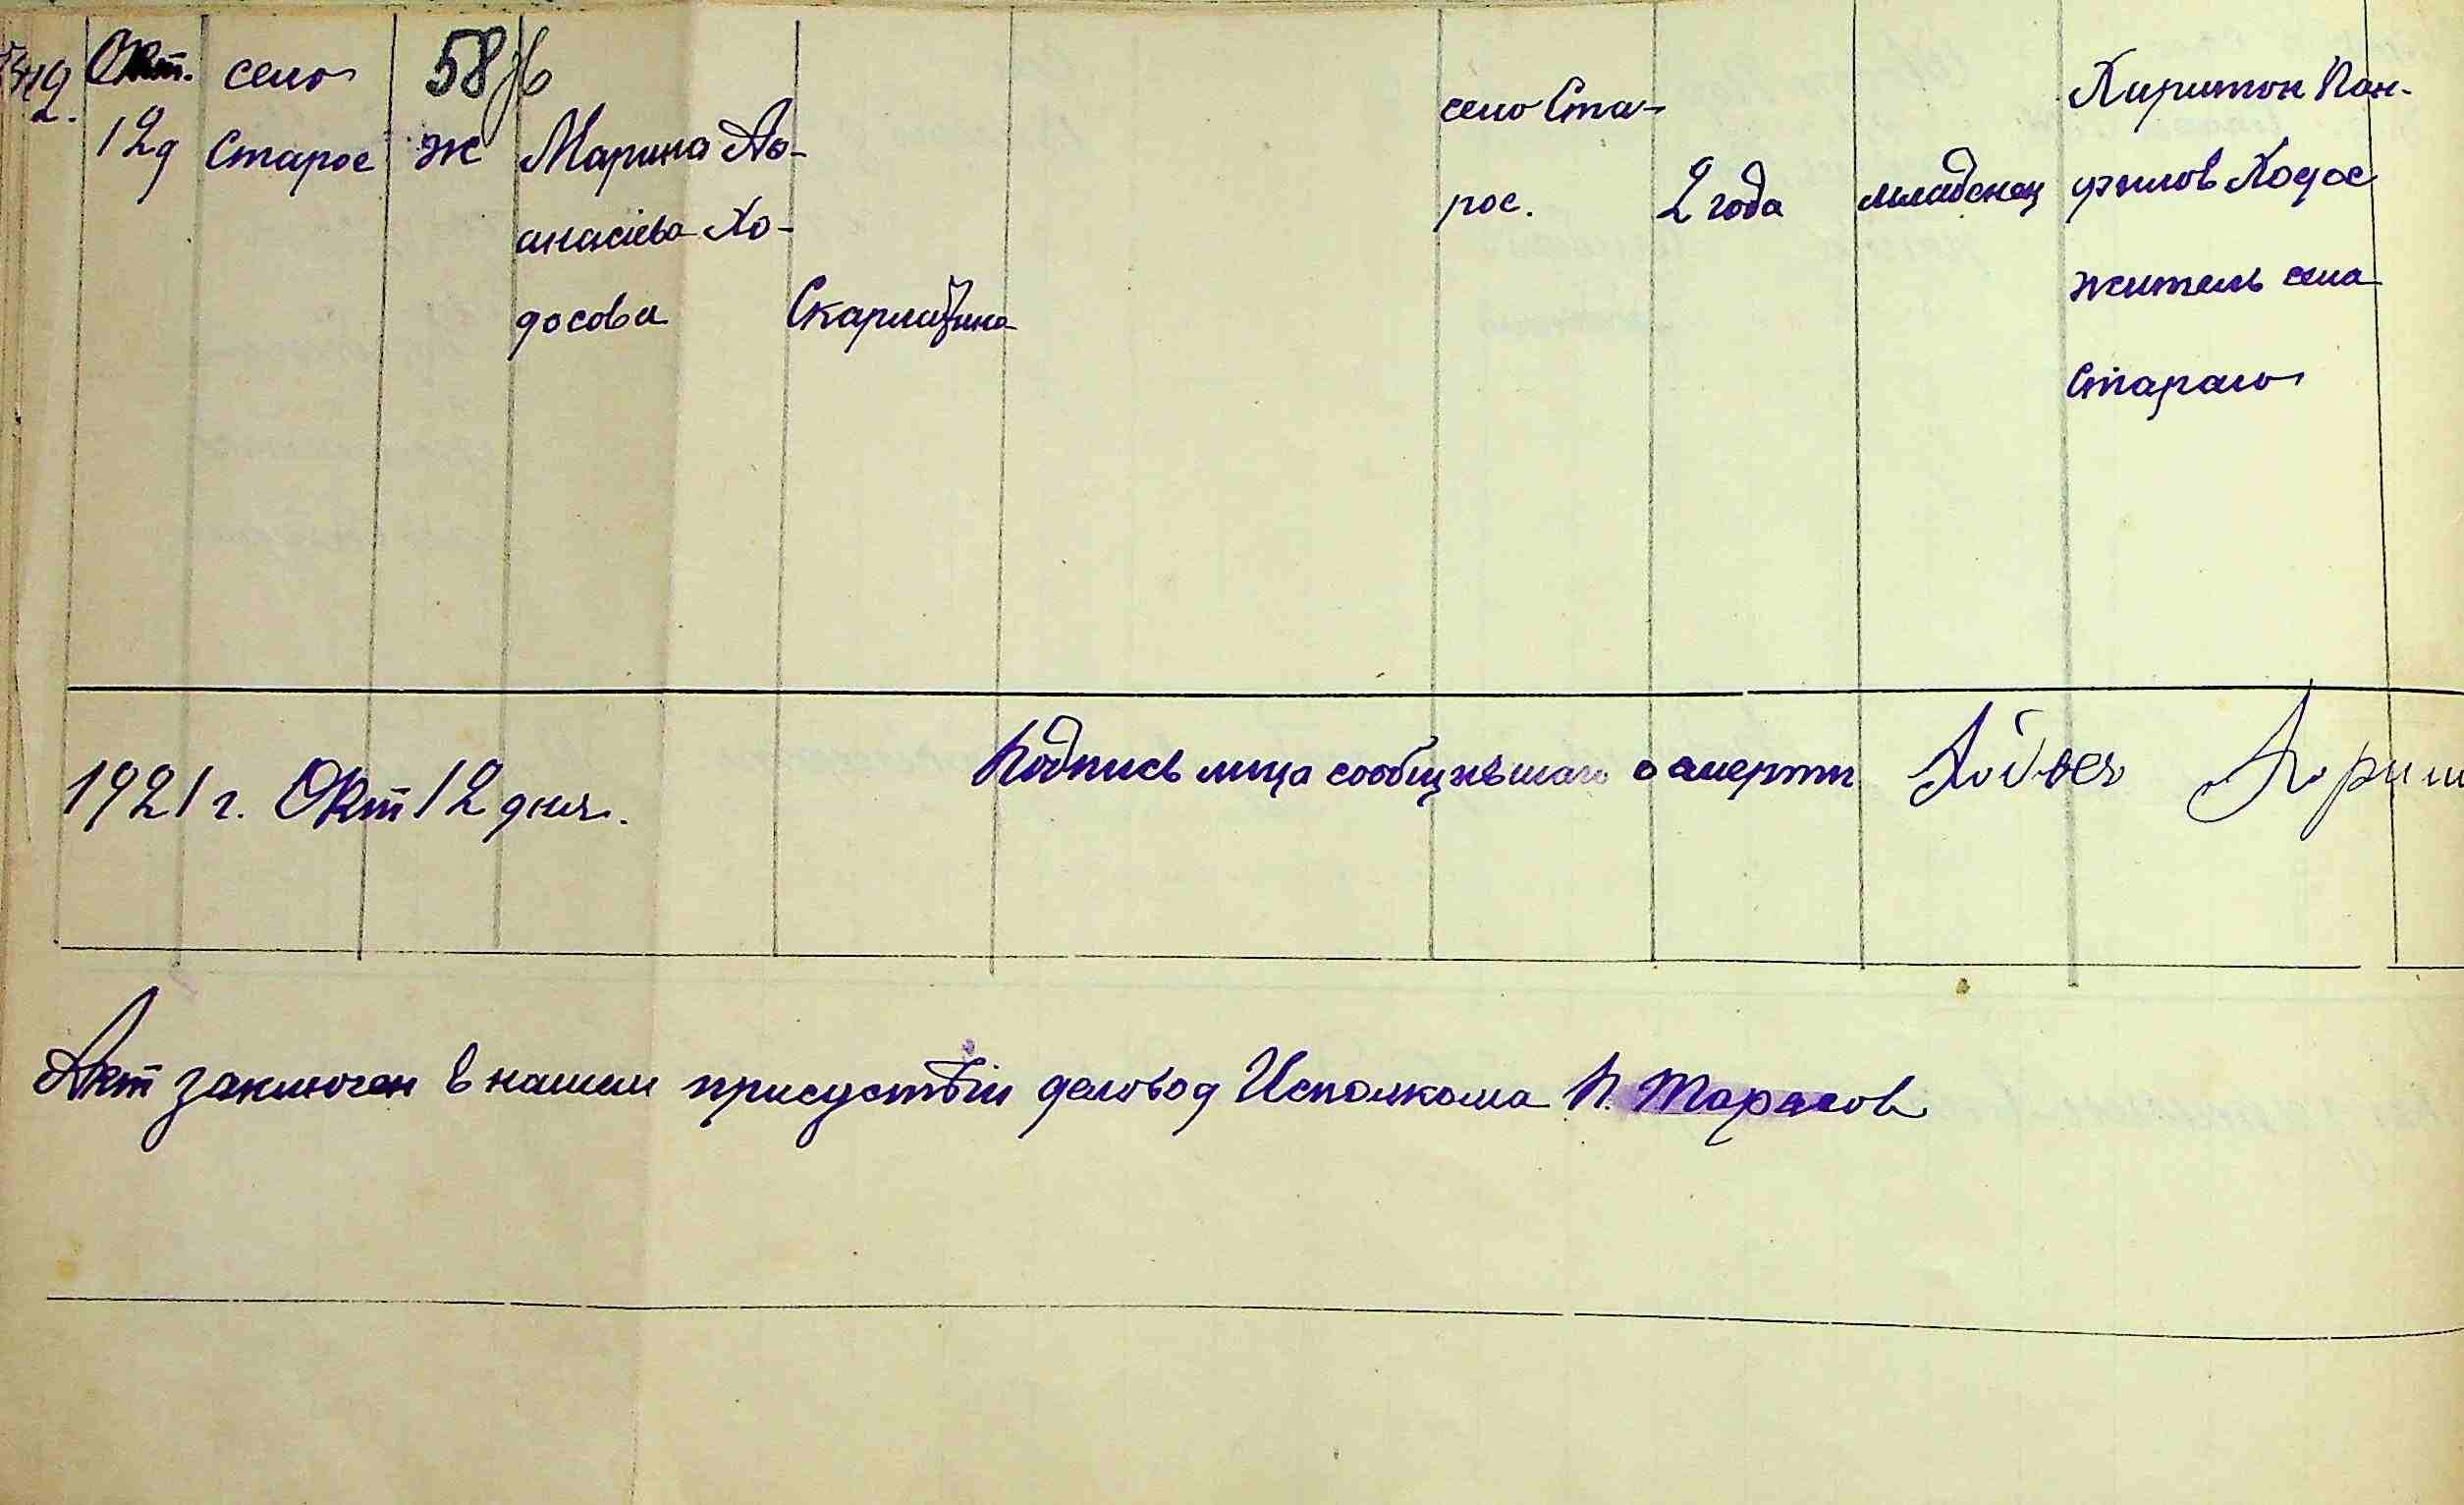 Окт. 12д
село Старое
58
ж
Марина Аѳ-
анасіева Хо-
досова
Скарлатина
село Ста-
рое.
2 года
младенец
Харитон Пан-
филов Ходос
житель села
Стараго
1921 г. Окт 12 дня.
Подпись лица сообщившаго о смерти Ходос
Акт заключен в нашем присуствіи деловод Исполкома П. Тарасов